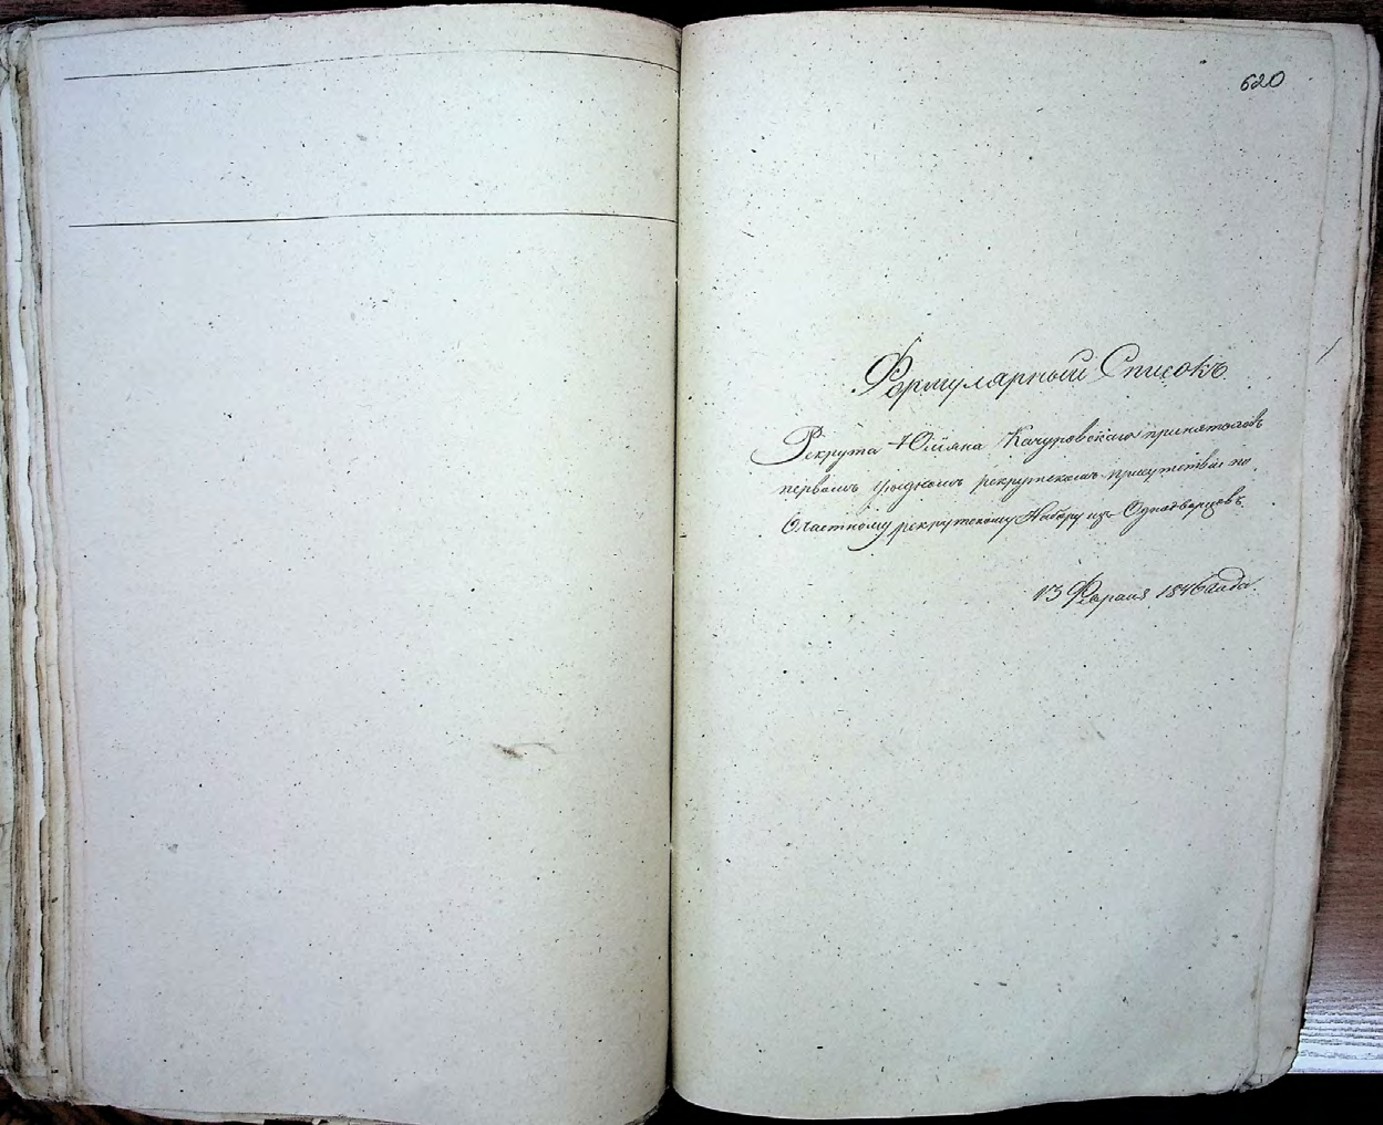 620
Формулярный Списокъ
Рекрута Юліяна Качуровскаго принятаго въ
первомъ уѣздномъ рекрутскомъ присутствіи по
частному рекрутскому Набору изъ Однодворцевъ.
13 Февраля 1846 года.